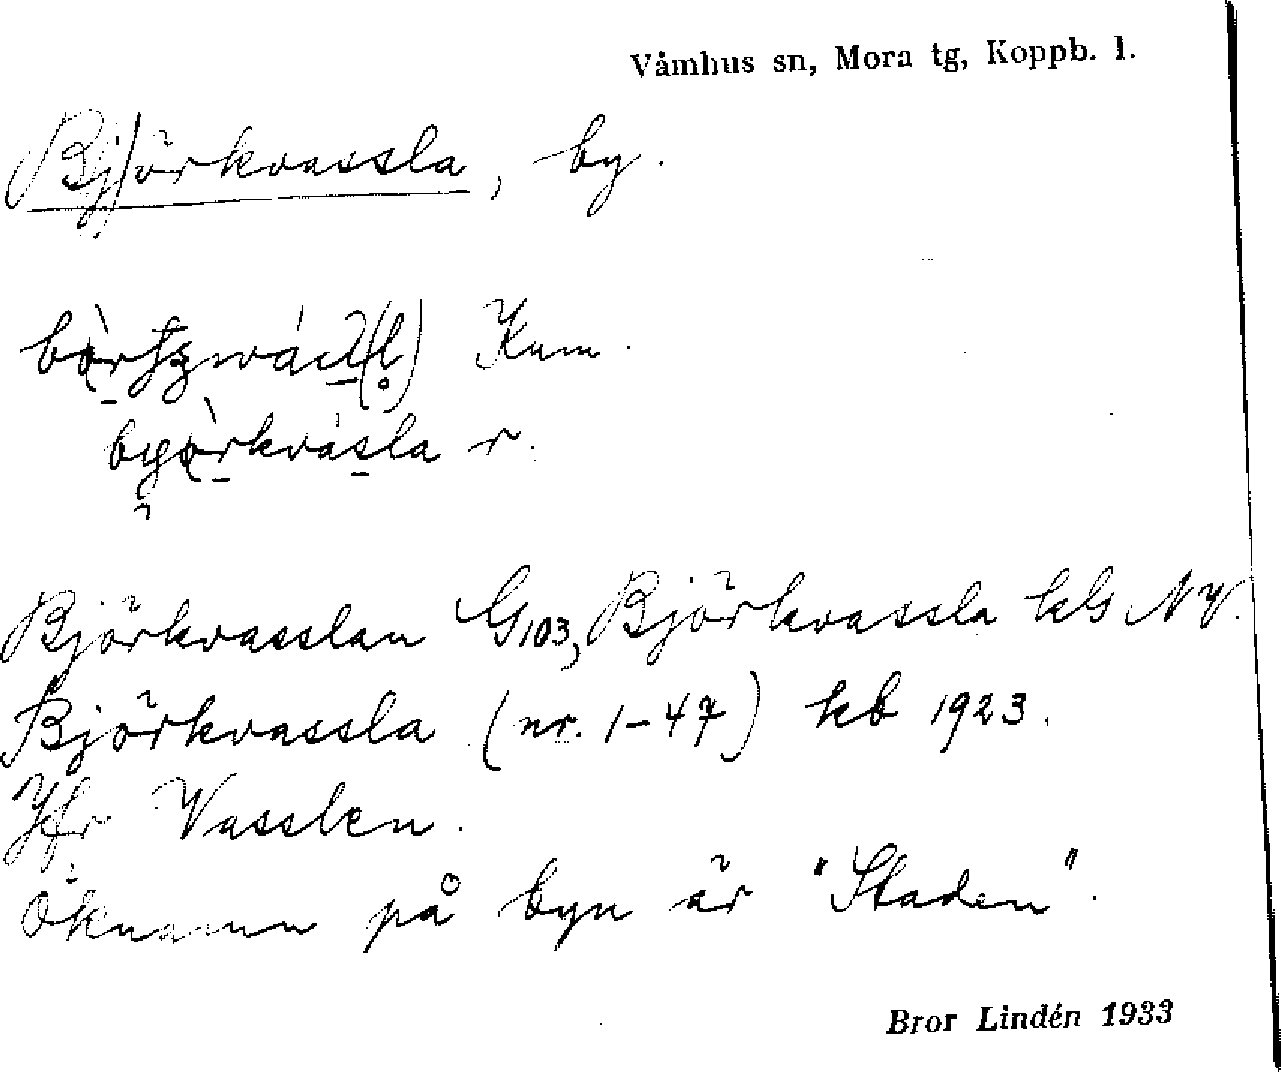 Våmhus sn, Mora tg, Koppb. l.
Björkvassla, by.
Björkvasslan G103, Björkvassla kG NV.
Björkvassla (nr. 1-47) kb 1923.
Jfr Vasslen.
Öknamn på byn är "Staden".
Bror Lindén 1933